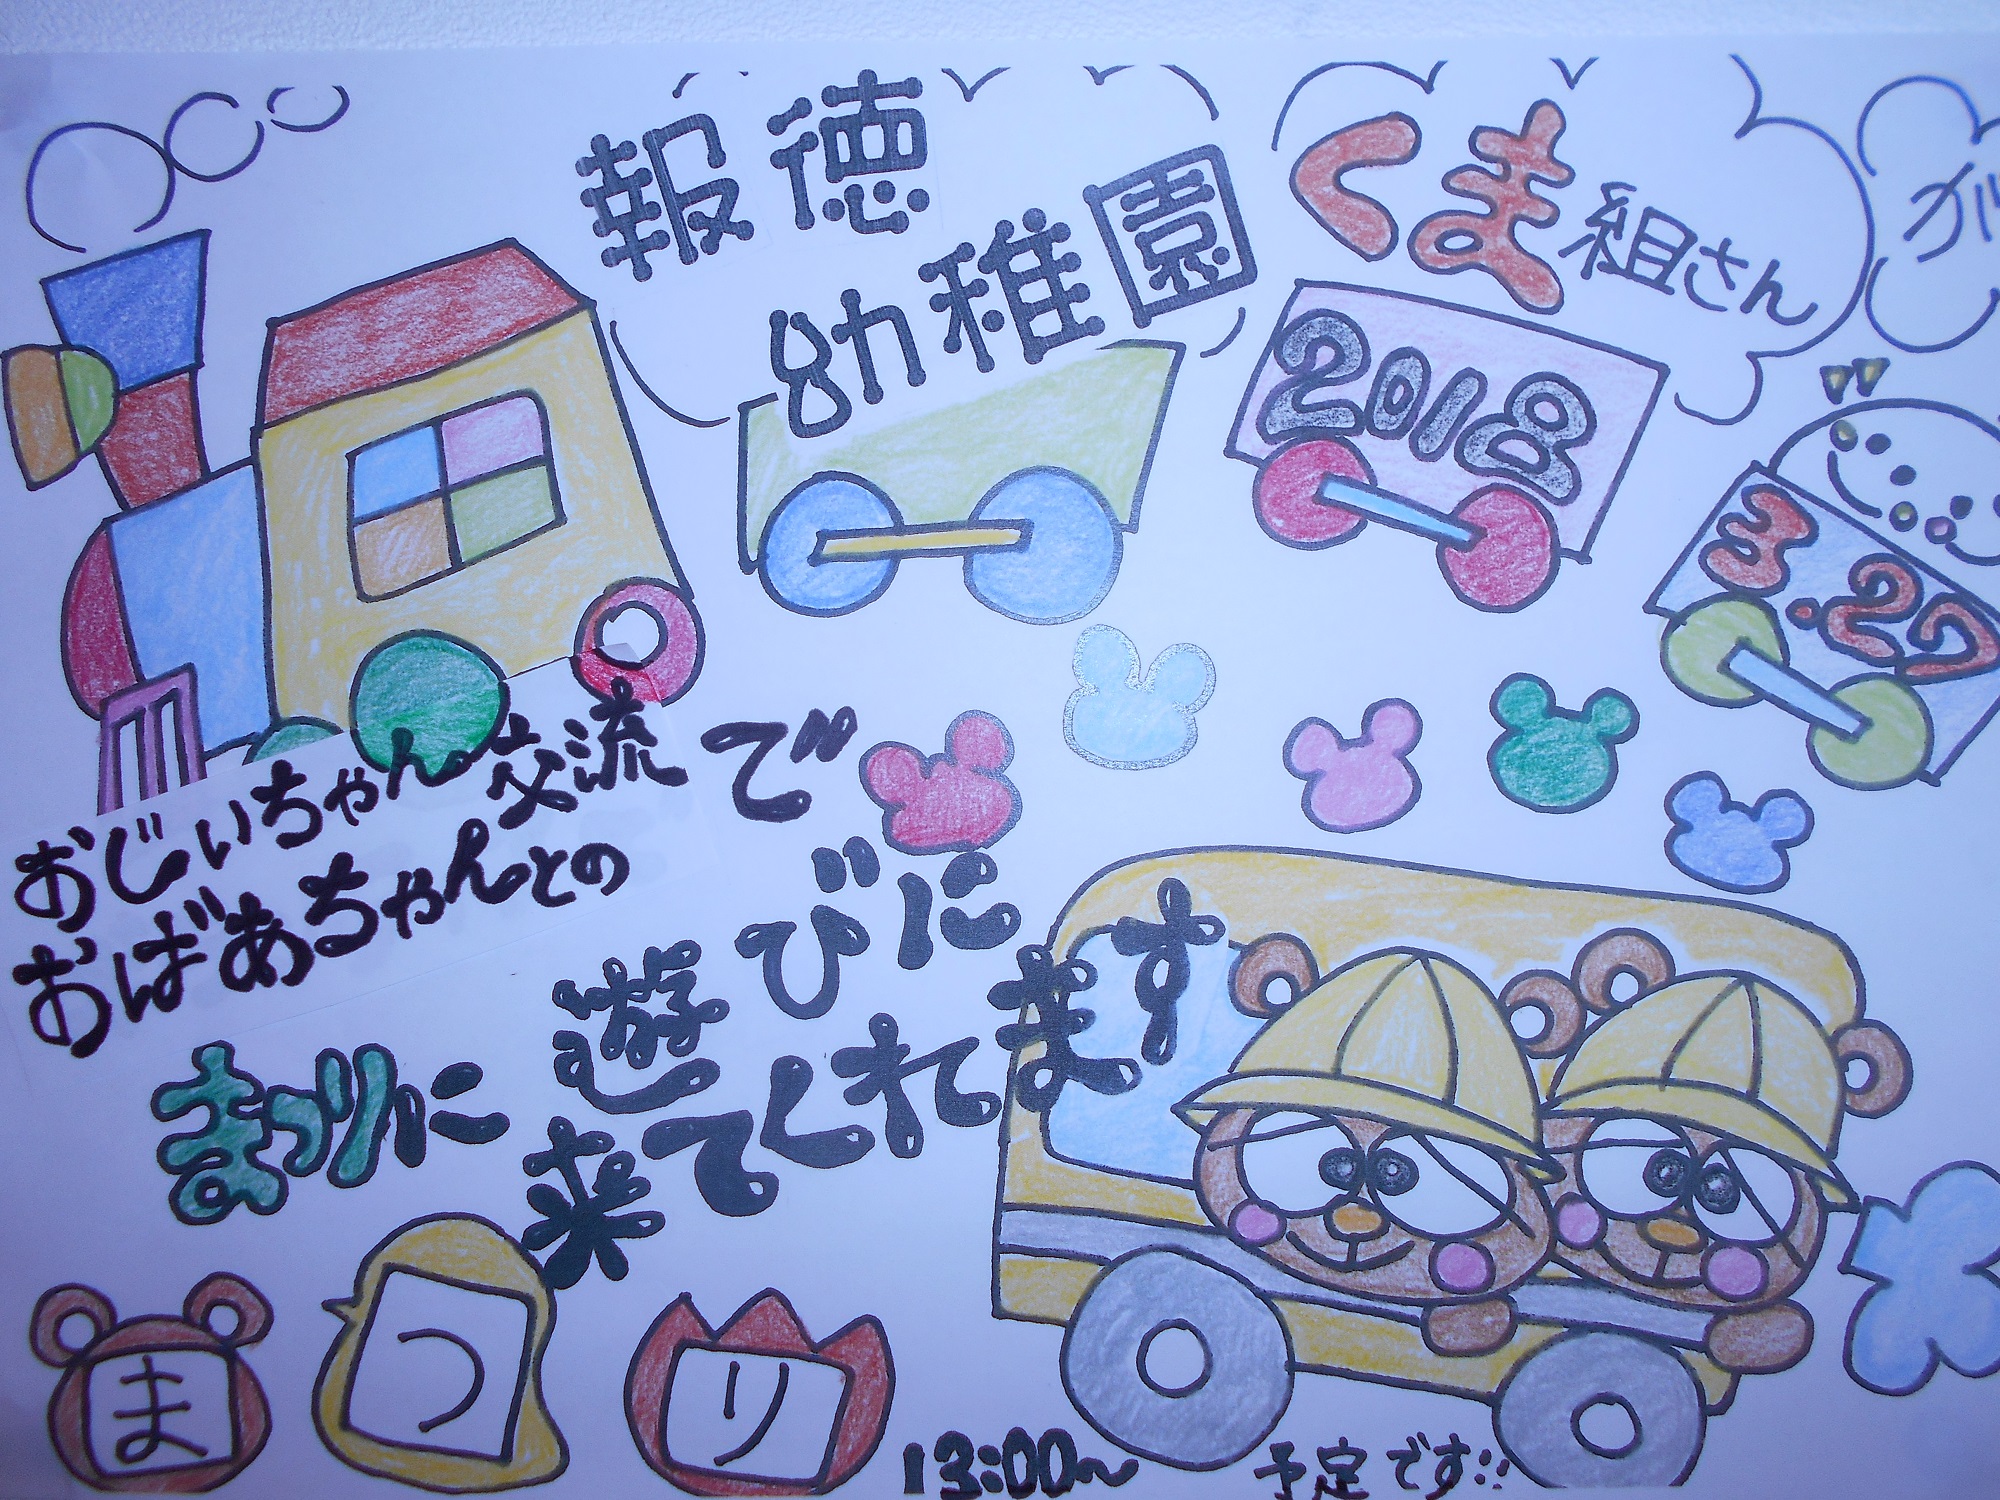 報徳
幼稚園
くま組さん
2018
3.27
おじいちゃん
おばあちゃんとの
交流で
まつりに
遊びに
来てくれます
まつり
13:00~
予定です!!